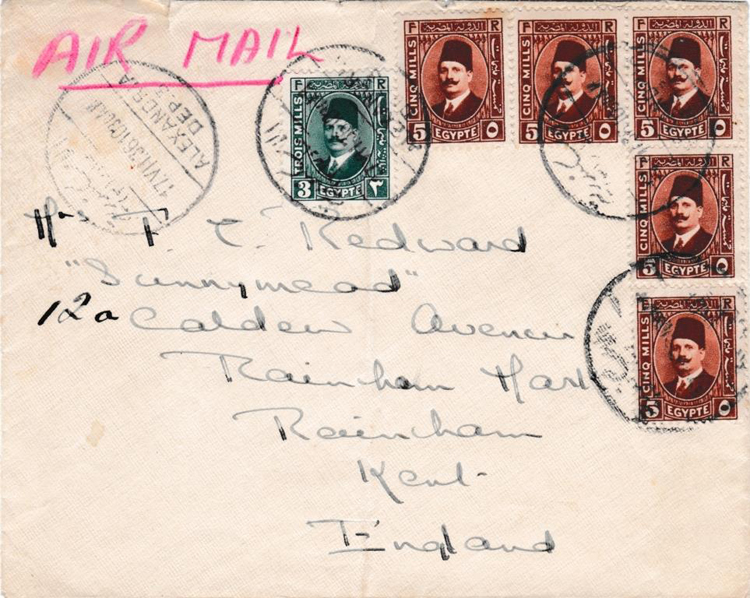 AIR MAIL
ALEXANDRIA
DEP
F R
TROIS MILLS
3 ٣
EGYPTE
F الدولة المصرية R
CINQ MILLS
5 ٥
EGYPTE
F الدولة المصرية R
CINQ MILLS
5 ٥
EGYPTE
F الدولة المصرية R
CINQ MILLS
5 ٥
EGYPTE
F R
CINQ MILLS
5 ٥
EGYPTE
F R
CINQ MILLS
5 ٥
EGYPTE
Redward
"Sunnymead"
12a Caldew Avenue
Rainham Mark
Rainham
Kent
England